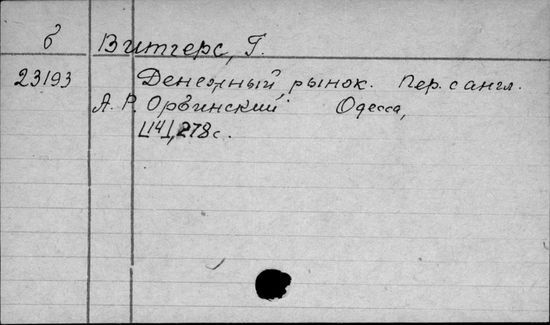 б Витгерс, Г.
23193 Денежный рынок. Пер. с англ.
А. Р. Орвинский Одесса,
278 с.